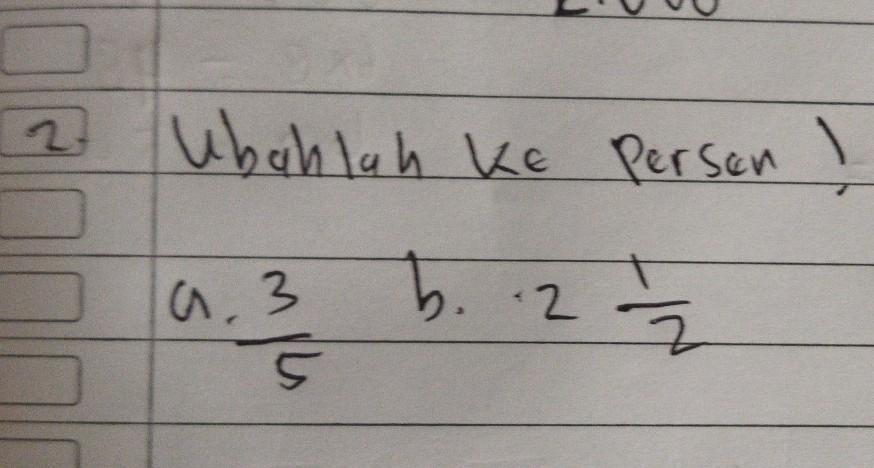 2. Ubahlah ke Persen!
a. 3/5 b. 2 1/2